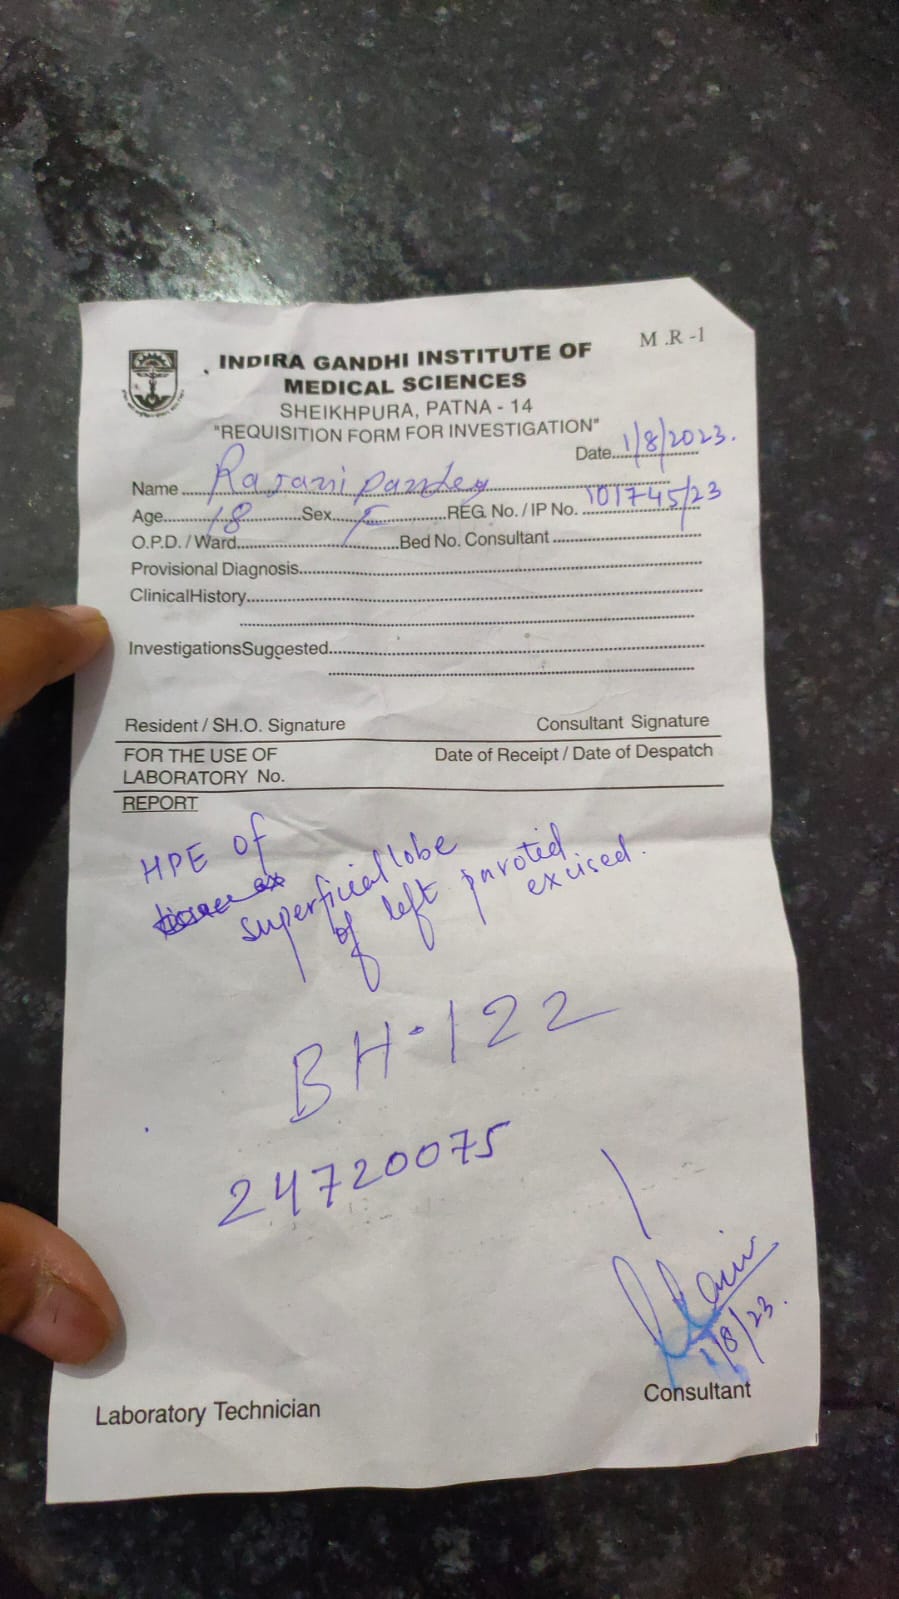 M.R-1
INDIRA GANDHI INSTITUTE OF
MEDICAL SCIENCES
SHEIKHPURA, PATNA - 14
"REQUISITION FORM FOR INVESTIGATION"
Date 1/8/2023.
Name Rajani pandey
Age 18 Sex F REG. No. / IP No. 101745/23
O.P.D. / Ward Bed No. Consultant
Provisional Diagnosis
ClinicalHistory
InvestigationsSuggested
Resident / SH.O. Signature Consultant Signature
FOR THE USE OF Date of Receipt / Date of Despatch
LABORATORY No.
REPORT
HPE of
superficial lobe
of left parotid
excised.
BH-122
24720075
1/8/23.
Laboratory Technician Consultant